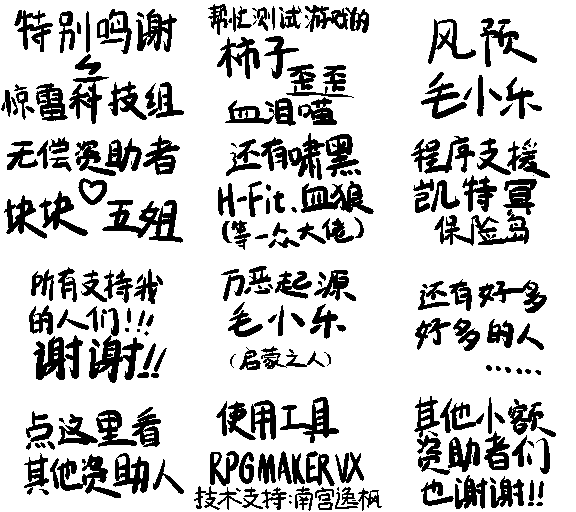 特别鸣谢
惊雷科技组
帮忙测试游戏的
柿子 歪歪
血泪喵
风预
毛小乐
无偿资助者
块块♡五姐
还有啸黑
H-Fit.血狼
(等一众大佬)
程序支援
凯特宣
保险岛
所有支持我
的人们!!!
谢谢!!
万恶起源
毛小乐
(启蒙之人)
还有好多
好多的人
……
点这里看
其他资助人
使用工具
RPGMAKERVX
技术支持:南宫逸枫
其他小额
资助者们
也谢谢!!